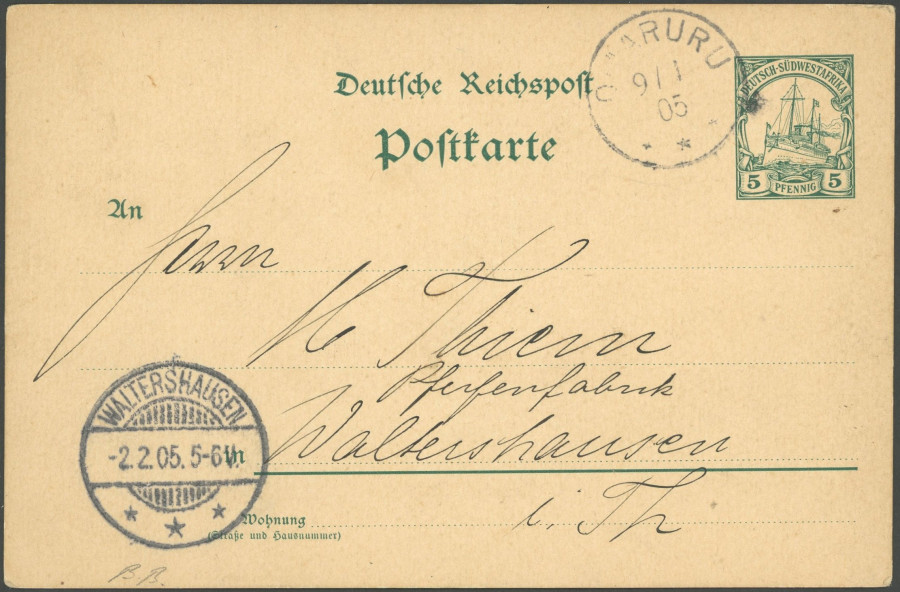 Deutsche Reichspost
Postkarte
OMARURU
9/1
05
DEUTSCH-SÜDWESTAFRIKA
5 PFENNIG 5
An
Herrn
H Thiem
Pfeifenfabrik
WALTERSHAUSEN
-2.2.05. 5-6N.
in Waltershausen
i. Th
Wohnung
(Straße und Hausnummer)
B.B.